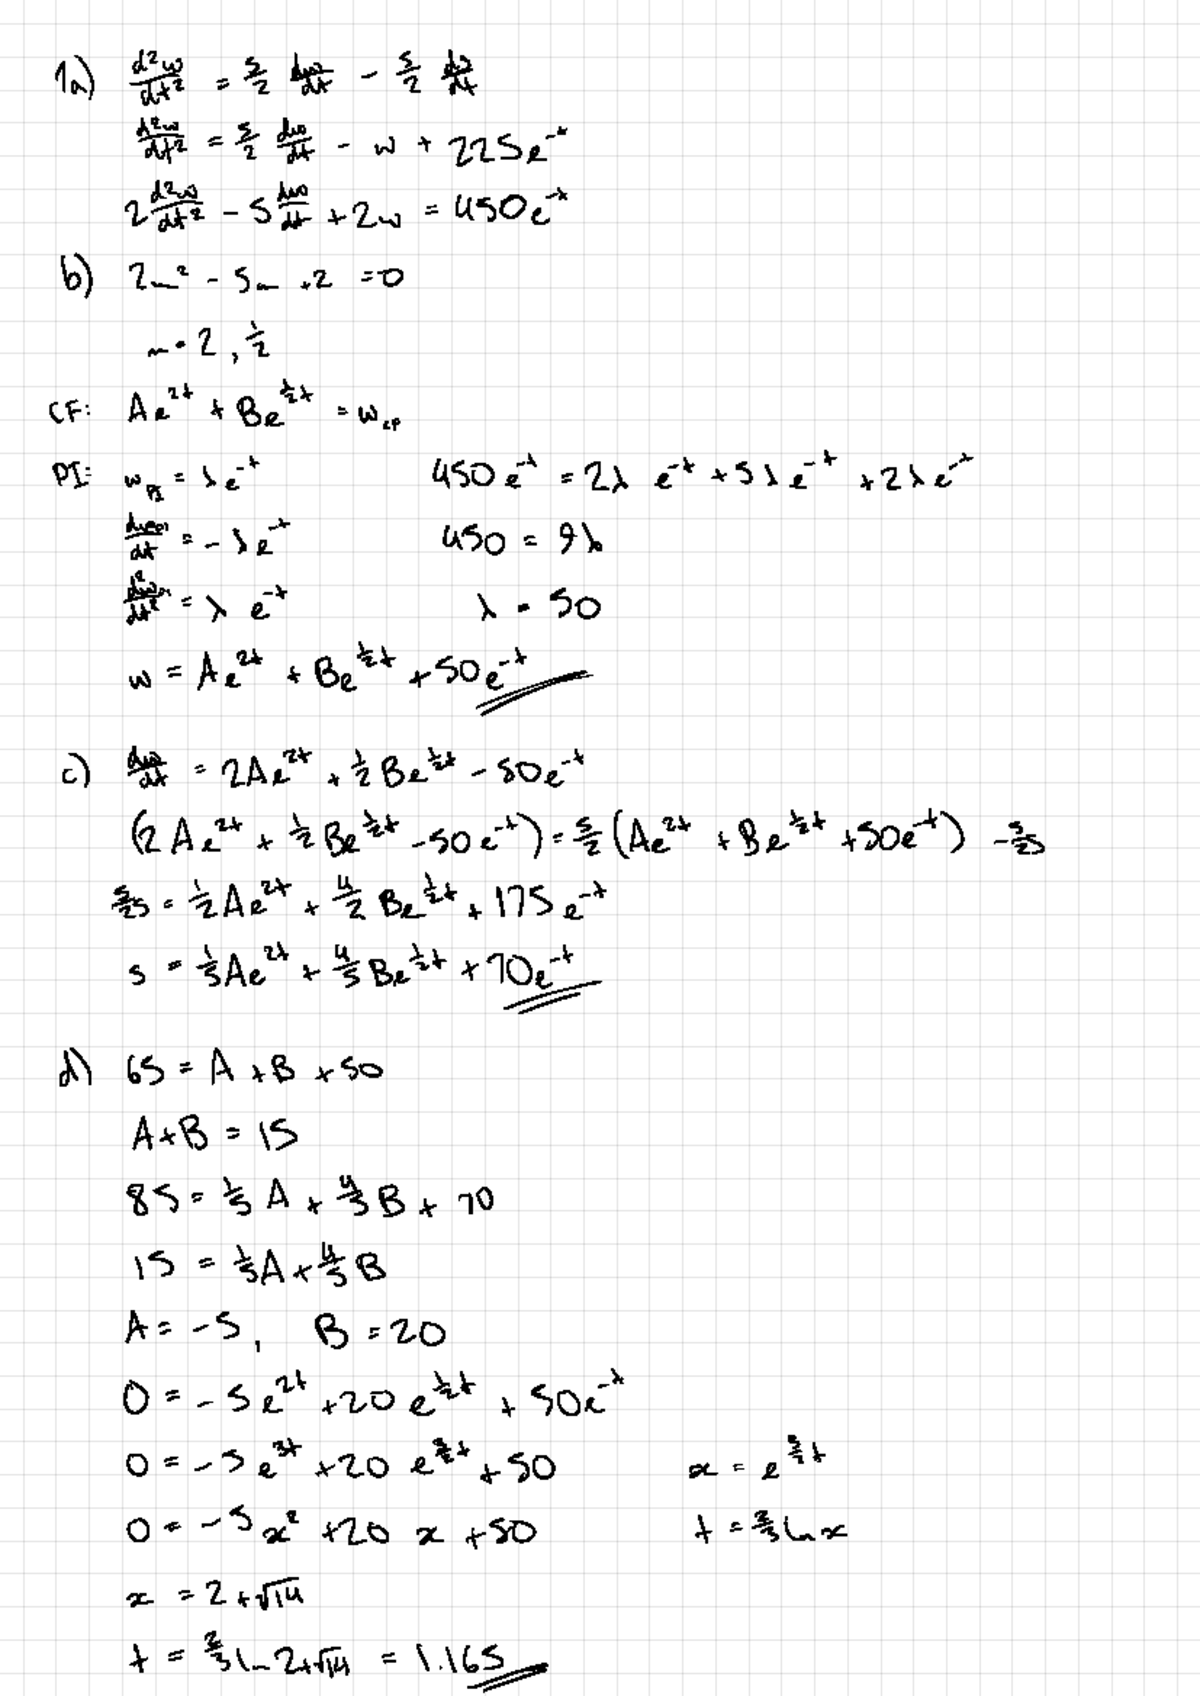 1a) d²w/dt² = 5/2 dw/dt - 5/2 ds/dt
d²w/dt² = 5/2 dw/dt - w + 225e^-t
2 d²w/dt² - 5 dw/dt + 2w = 450e^-t
b) 2m² - 5m + 2 = 0
m = 2, 1/2
CF: Ae^2t + Be^½t = w_CF
PI: w_PI = λe^-t 450e^-t = 2λe^-t + 5λe^-t + 2λe^-t
dw_PI/dt = -λe^-t 450 = 9λ
d²w_PI/dt² = λe^-t λ = 50
w = Ae^2t + Be^½t + 50e^-t
c) dw/dt = 2Ae^2t + ½Be^½t - 50e^-t
(2Ae^2t + ½Be^½t - 50e^-t) = 5/2 (Ae^2t + Be^½t + 50e^-t) - 5/2 s
5/2 s = ½Ae^2t + 4/2 Be^½t + 175e^-t
s = 1/5 Ae^2t + 4/5 Be^½t + 70e^-t
d) 65 = A + B + 50
A + B = 15
85 = 1/5 A + 4/5 B + 70
15 = 1/5 A + 4/5 B
A = -5, B = 20
0 = -5e^2t + 20e^½t + 50e^-t
0 = -5e^3t + 20e^3/2t + 50 x = e^3/2t
0 = -5x² + 20x + 50 t = 2/3 ln x
x = 2 + √14
t = 2/3 ln 2+√14 = 1.165